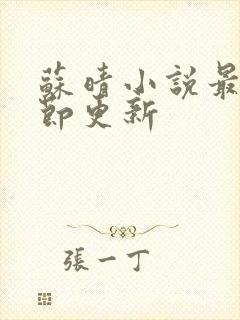 蘇晴小說最
節更新
張一丁